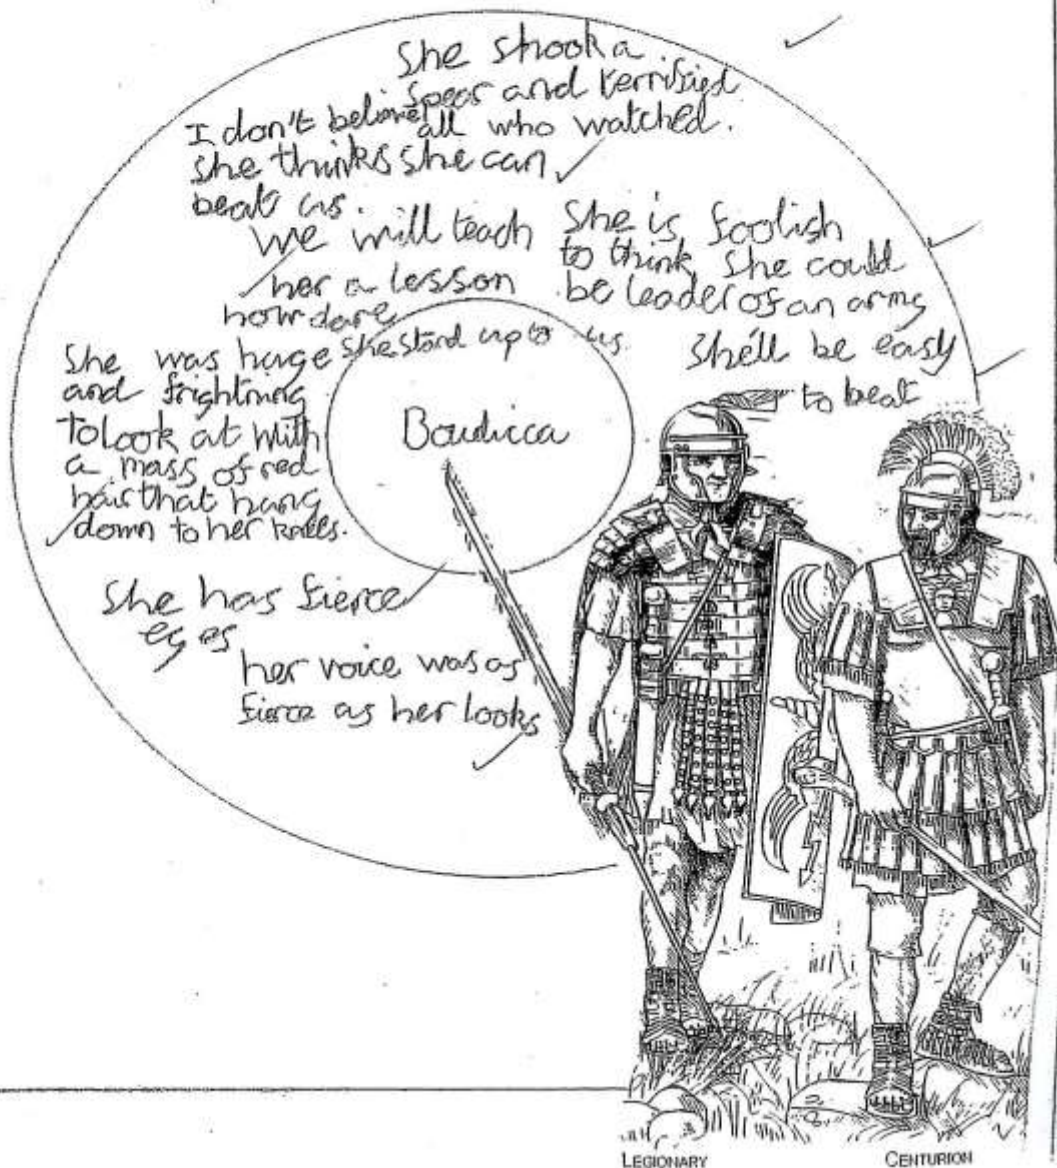 She shook a
spear and terrified
all who watched.
I don't believe
she thinks she can
beat us.
we will teach
her a lesson
how dare
she stand up to us.
She is foolish
to think she could
be leader of an army
She'll be easy
to beat
She was huge
and frightning
to look at with
a mass of red
hair that hang
down to her knees.
Boudicca
She has fierce
eyes
her voice was as
fierce as her looks
LEGIONARY
CENTURION